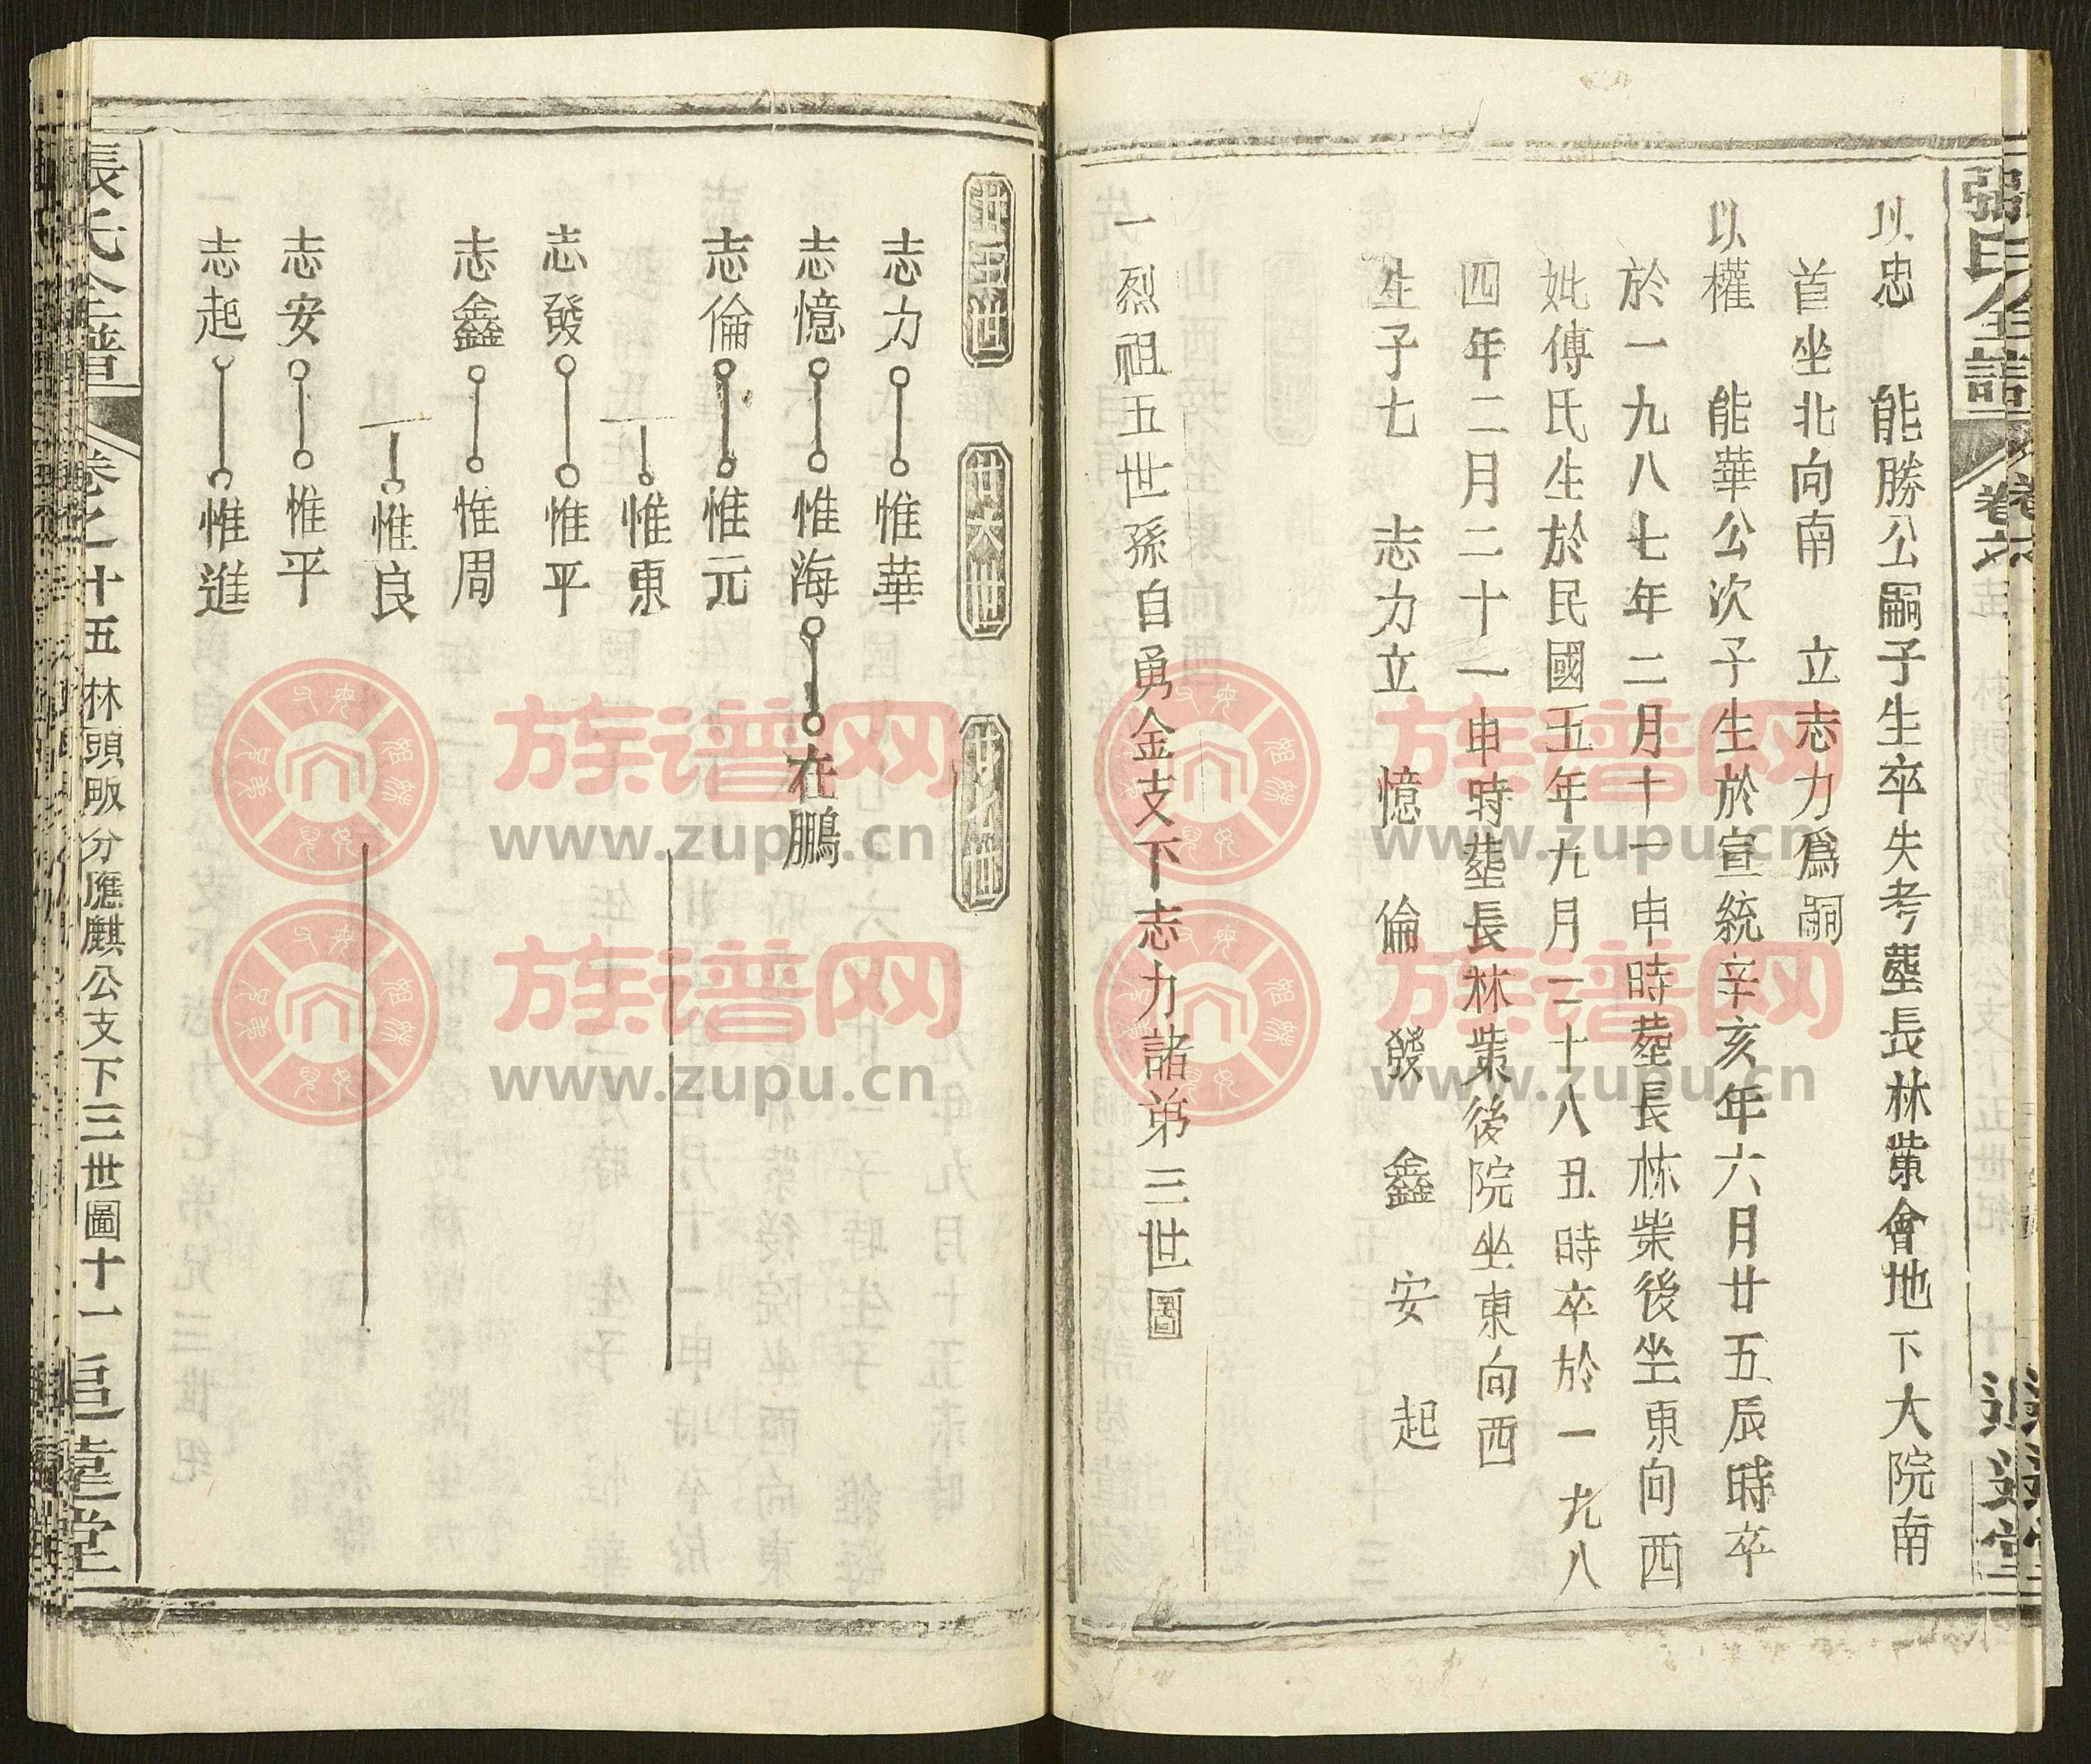 以忠 能勝公嗣子生卒失考塟長林柴會地下大院南
首坐北向南 立志力為嗣
以權 能華公次子生於宣統辛亥年六月廿五辰時卒
於一九八七年二月十一申時塟長林柴後坐東向西
妣傅氏生於民國五年九月二十八丑時卒於一九八
四年二月二十一申時塟長林柴後院坐東向西
生子七 志力立 憶 倫 發 鑫 安 起
一烈祖五世孫自勇金支下志力諸弟三世圖
廿五世
廿六世
廿七世
志力 惟華
志憶 惟海 在鵬
志倫 惟元
惟東
志發 惟平
志鑫 惟周
惟良
志安 惟平
志起 惟進
張氏全譜 卷之十五 林頭畈分應麒公支下三世圖十一 追遠堂
族谱网
www.zupu.cn
族谱网
www.zupu.cn
族谱网
www.zupu.cn
族谱网
www.zupu.cn